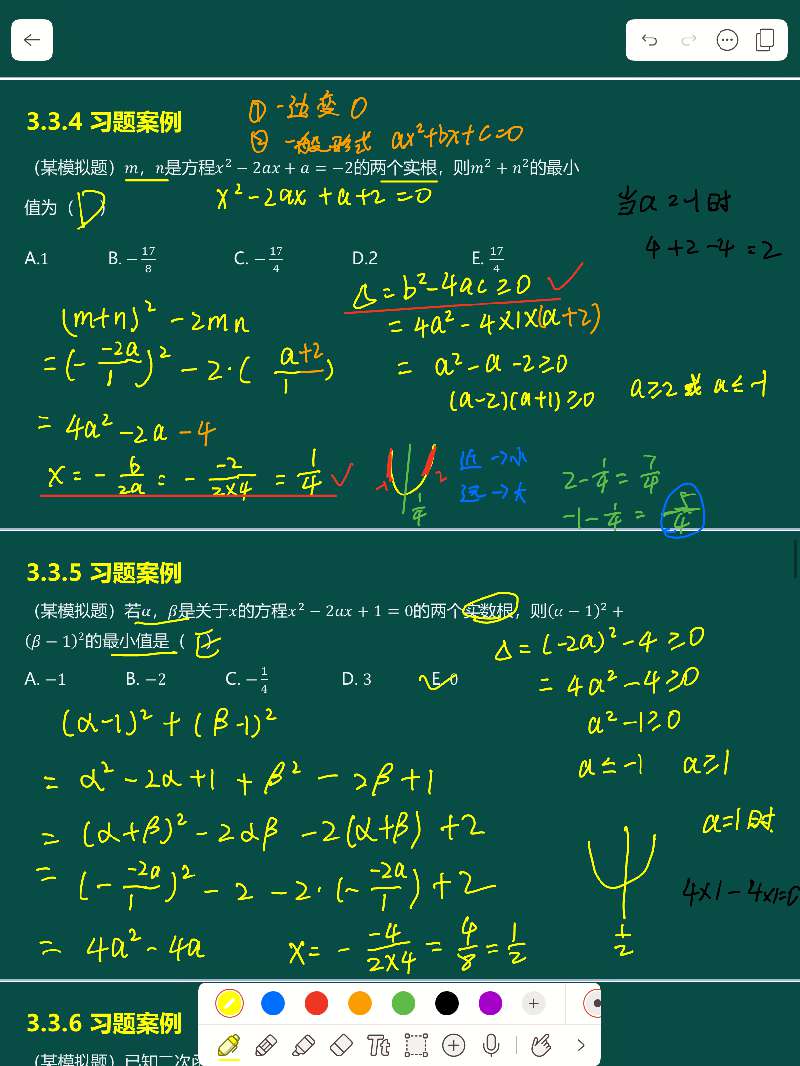 3.3.4 习题案例
① 一边变 0
② 一般形式 ax²+bx+c=0
（某模拟题）m，n是方程x²−2ax+a=−2的两个实根，则m²+n²的最小
值为（ D ）
x²-2ax+a+2=0
当a=-1时
4+2-4=2
A.1 B.−17/8 C.−17/4 D.2 E.17/4
(m+n)²-2mn
=(- -2a/1)²-2·( a+2/1 )
=4a²-2a-4
x=- b/2a = - -2/2×4 = 1/4 ✓
Δ=b²-4ac≥0 ✓
=4a²-4×1×(a+2)
= a²-a-2≥0
(a-2)(a+1)≥0 a≥2或a≤-1
-1 2
1/4
近→小
远→大
2-1/4=7/4
-1-1/4=-5/4
3.3.5 习题案例
（某模拟题）若α，β是关于x的方程x²−2ax+1=0的两个实数根，则(α−1)²+
(β−1)²的最小值是（ E ）
A.−1 B.−2 C.−1/4 D.3 E.0
Δ=(-2a)²-4≥0
=4a²-4≥0
a²-1≥0
a≤-1 a≥1
(α-1)²+(β-1)²
= α²-2α+1+β²-2β+1
= (α+β)²-2αβ-2(α+β)+2
= (- -2a/1)²-2-2·(- -2a/1)+2
= 4a²-4a
x=- -4/2×4 = 4/8 = 1/2
1/2
a=1时
4×1-4×1=0
3.3.6 习题案例
（某模拟题）已知二次函
Tt